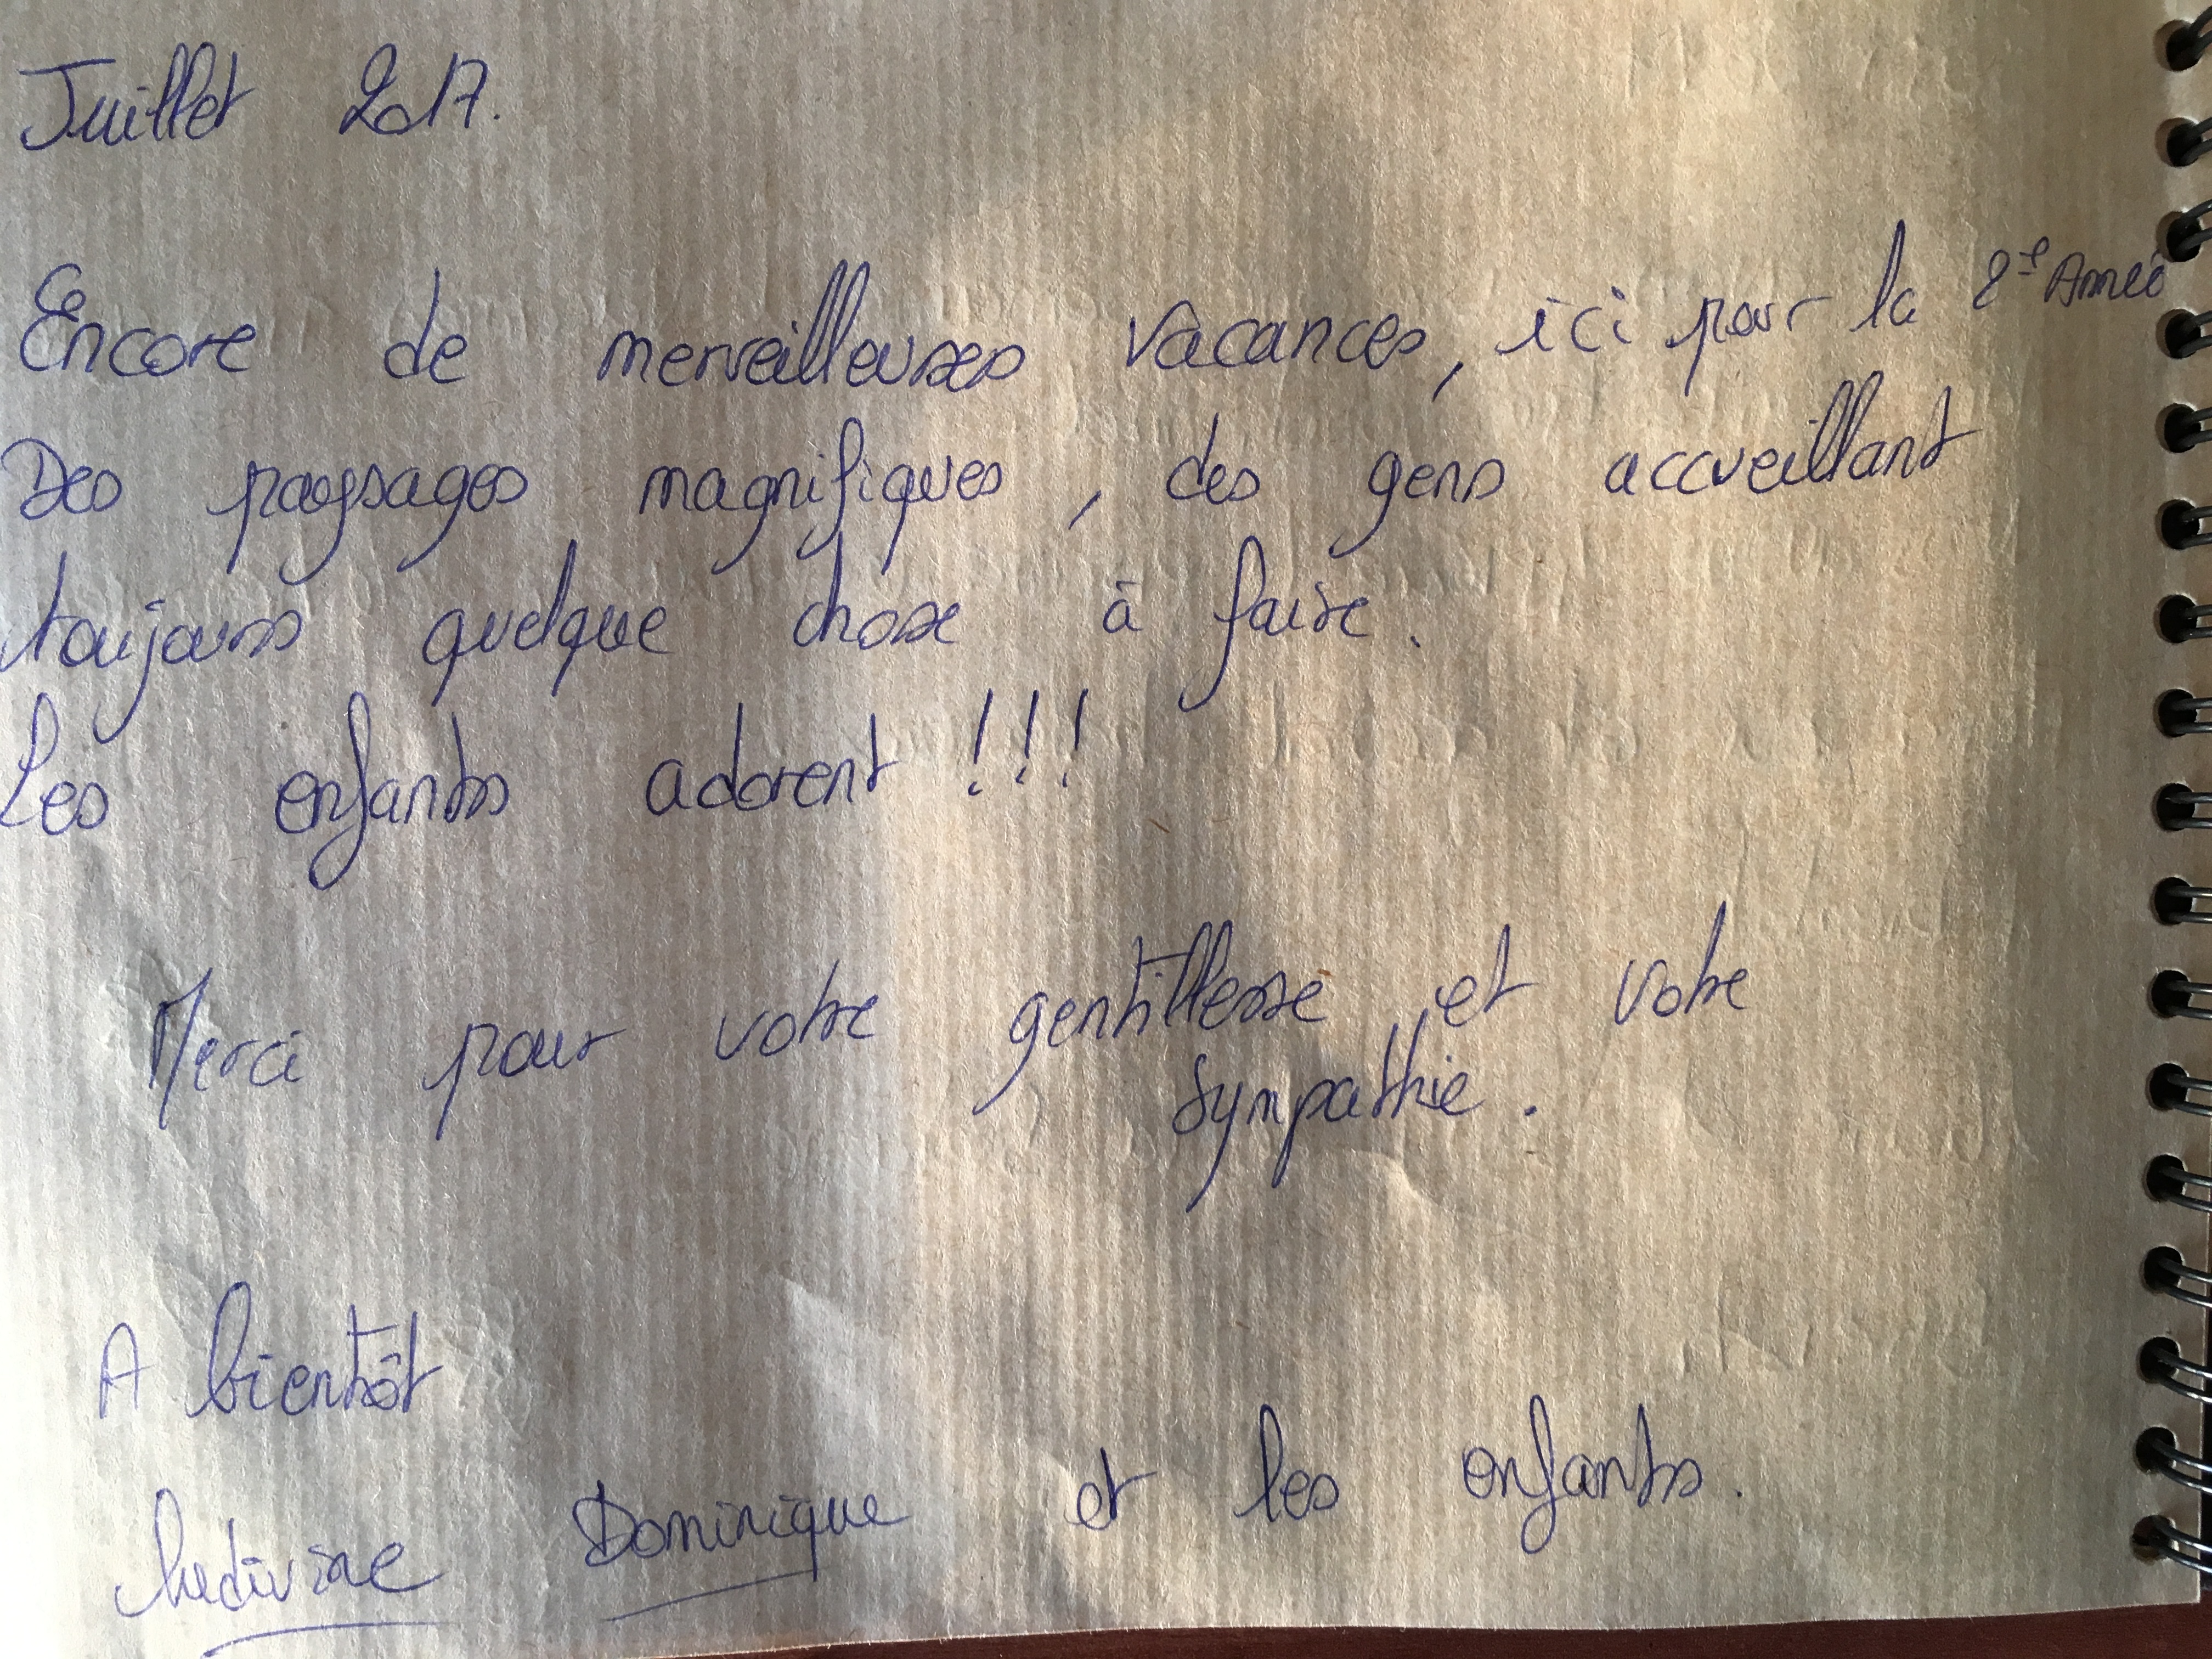 Juillet 2017.
Encore de merveilleuses vacances, ici pour la 2e Année
Des paysages magnifiques, des gens accueillant
toujours quelque chose à faire.
Les enfants adorent !!!
Merci pour votre gentillesse et votre
sympathie.
A bientôt
Dominique et les enfants.